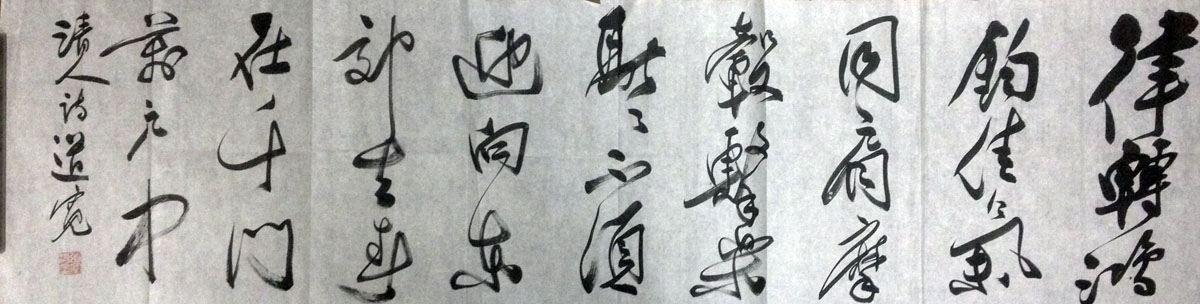 律轉鴻
鈞佳氣
同肩摩
轂擊樂
融々不須
迎向東
郊去春
在千門
萬户中
清人詩道寬